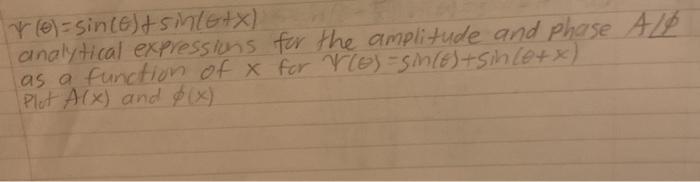 Ψ(θ)=sin(θ)+sin(θ+x)
analytical expressions for the amplitude and phase A∠ϕ
as a function of x for Ψ(θ)=sin(θ)+sin(θ+x)
Plot A(x) and ϕ(x)